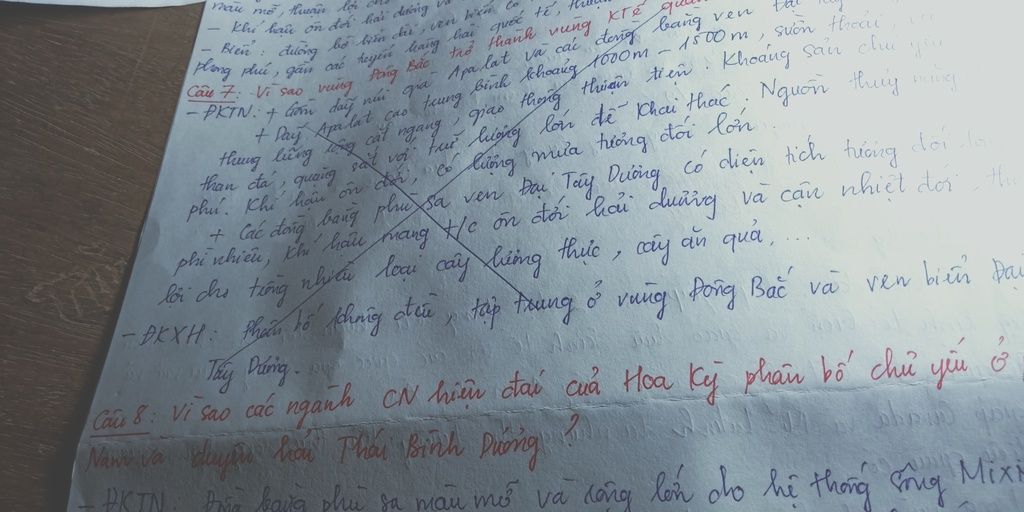 màu mỡ, thuận lợi cho
- Khí hậu ôn đới hải dương và
- Biển: đường bờ biển dài, ven biển có
phong phú, gần các tuyến hàng hải quốc tế, thuận
Câu 7: Vì sao vùng Đông Bắc trở thành vùng KTế quan
- ĐKTN: + Gồm dãy núi già Apalat và các đồng bằng ven Đại Tây
+ Dãy Apalat cao trung bình khoảng 1000m - 1500m, sườn thoải,
thung lũng rộng cắt ngang, giao thông thuận tiện. Khoáng sản chủ yếu
than đá, quặng sắt với trữ lượng lớn dễ khai thác. Nguồn thuỷ năng
phú. Khí hậu ôn đới, có lượng mưa tương đối lớn.
+ Các đồng bằng phù sa ven Đại Tây Dương có diện tích tương đối
phì nhiêu, khí hậu mang t/c ôn đới hải dương và cận nhiệt đới,
lợi cho trồng nhiều loại cây lương thực, cây ăn quả, ...
- ĐKXH: Phân bố không đều, tập trung ở vùng Đông Bắc và ven biển Đại
Tây Dương.
Câu 8: Vì sao các ngành CN hiện đại của Hoa Kỳ phân bố chủ yếu ở
Nam và duyên hải Thái Bình Dương?
- ĐKTN: Đồng bằng phù sa màu mỡ và rộng lớn do hệ thống sông